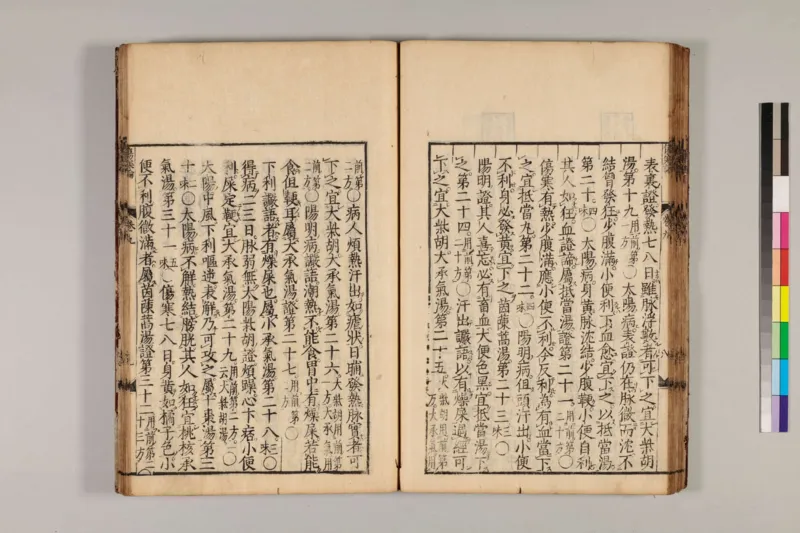 表裏證發熱七八日雖脉浮數者可下之宜大柴胡
湯第十九用前第一方○太陽病表證仍在脉微而沈不
結胷發狂少腹滿小便利下血愈宜下之以抵當湯
第二十四味○太陽病身黄脉沈結少腹鞕小便自利
其人如狂血證諦屬抵當湯證第二十一用前第二十方○
傷寒有熱少腹滿應小便不利今反利為有血當下
之宜抵當丸第二十二四味○陽明病但頭汗出小便
不利身必發黄宜下之茵蔯蒿湯第二十三三味○
陽明證其人喜忘必有畜血大便色黑宜抵當湯下
之第二十四用前第二十方○汗出讝語以有燥屎過經可
下之宜大柴胡大承氣湯第二十五大柴胡用前第一方大承氣用
前第二方○病人煩熱汗出如瘧狀日晡發熱脉實者可
下之宜大柴胡大承氣湯第二十六大柴胡用前第一方大承氣用
前第二方○陽明病讝語潮熱不能食胃中有燥屎若能
食但鞕耳屬大承氣湯證第二十七用前第二方○
下利讝語者有燥屎也屬小承氣湯第二十八三味○
得病二三日脉弱無太陽柴胡證煩躁心下痞小便
利屎定鞕宜大承氣湯第二十九用前第二方一云大柴胡湯○
太陽中風下利嘔逆表解乃可攻之屬十棗湯第三
十三味○太陽病不解熱結膀胱其人如狂宜桃核承
氣湯第三十一五味○傷寒七八日身黄如橘子色小
便不利腹微滿者屬茵蔯蒿湯證第三十二用前第二十三方○